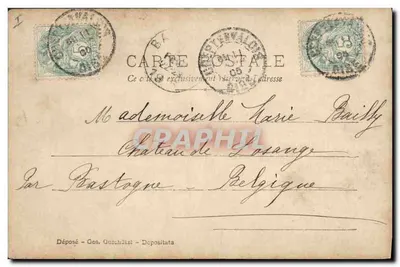 CARTE POSTALE
Ce côté est exclusivement réservé à l'adresse
CRÉPY-EN-VALOIS
OISE
CRAPHTI
Mademoiselle Marie Bailly
Château de Losange
Par Bastogne Belgique
Déposé - Ges. Geschützt - Depositata